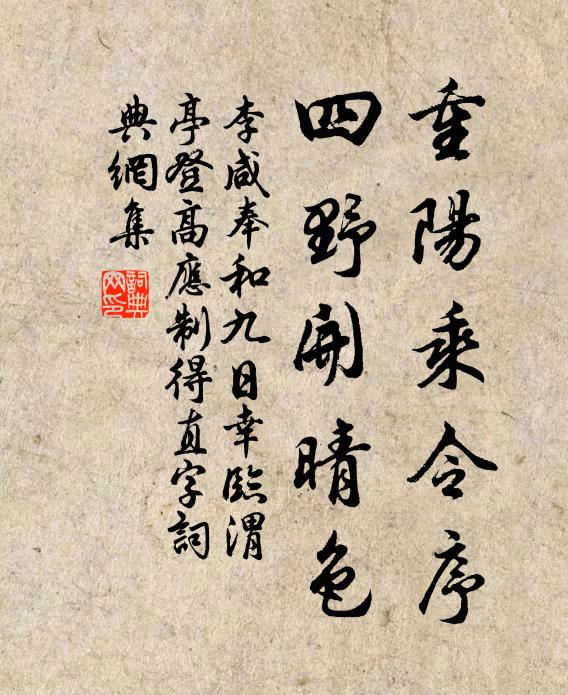 重陽乘令序
四野開晴色
李咸奉和九日幸臨渭
亭登高應制得直字詞
典網集
詞典
网印